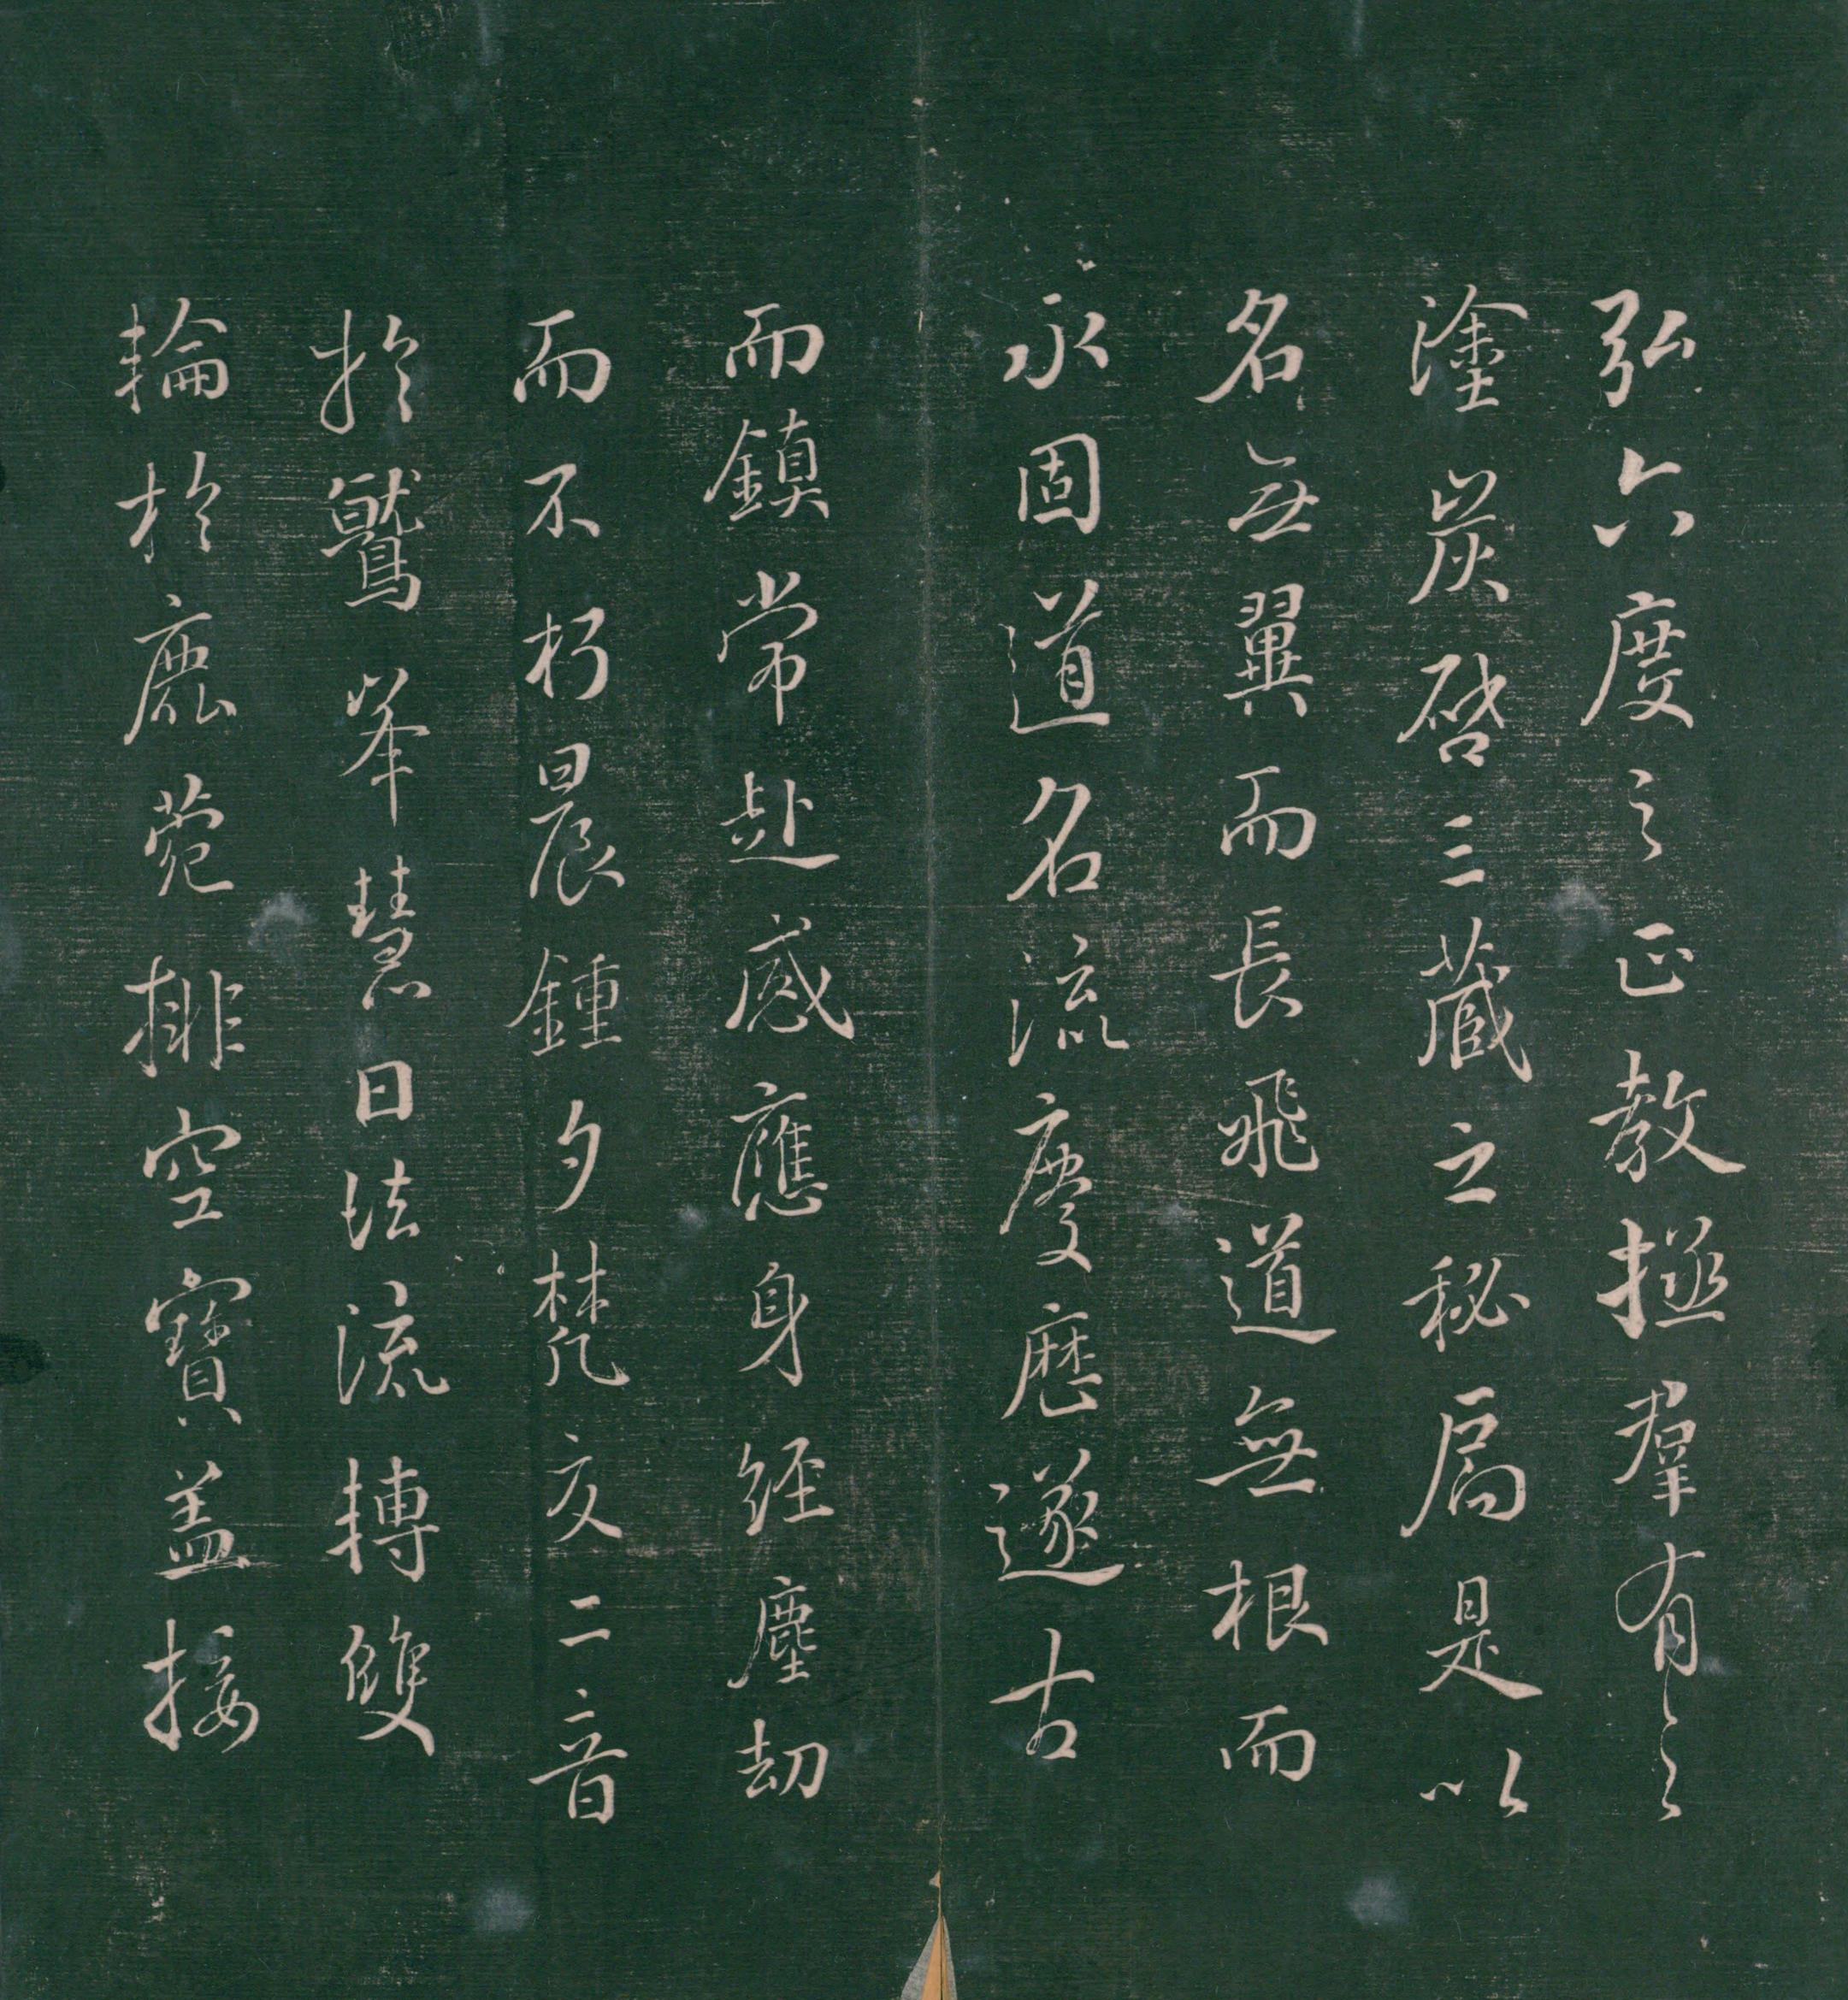 弘六度之正教拯羣有之
塗炭啓三藏之秘扃是以
名無翼而長飛道無根而
永固道名流慶歷遂古
而鎮常赴感應身經塵劫
而不朽晨鍾夕梵交二音
於鷲峯慧日法流轉雙
輪於鹿菀排空寶盖接